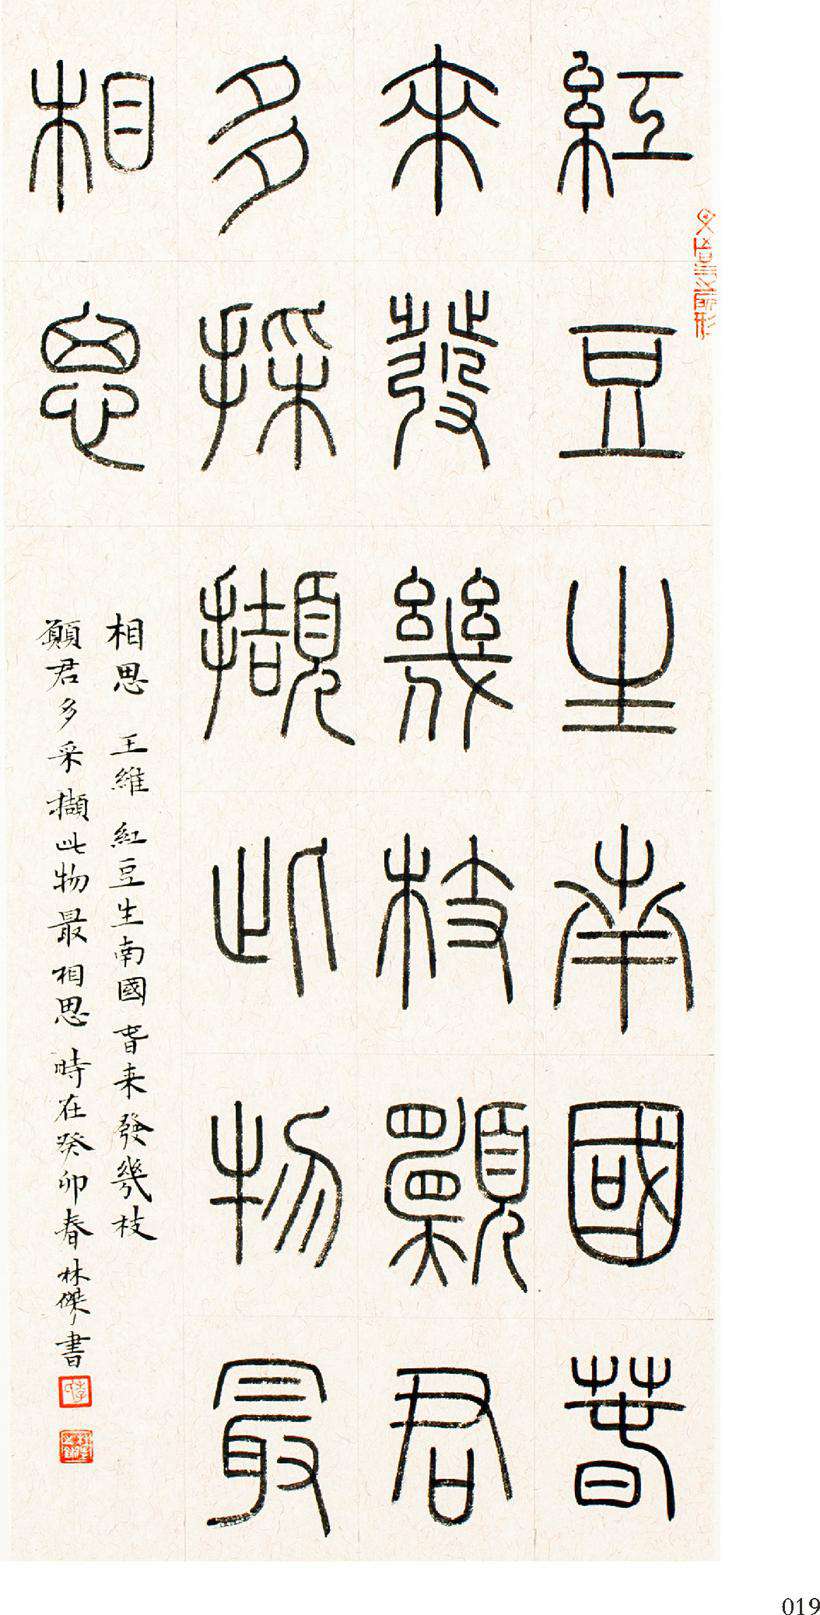 紅豆生南國萅
來發幾枝願君
多採擷此物最
相思
相思 王維 紅豆生南國萅来發幾枝
願君多采擷此物最相思 時在癸卯春林傑書
019